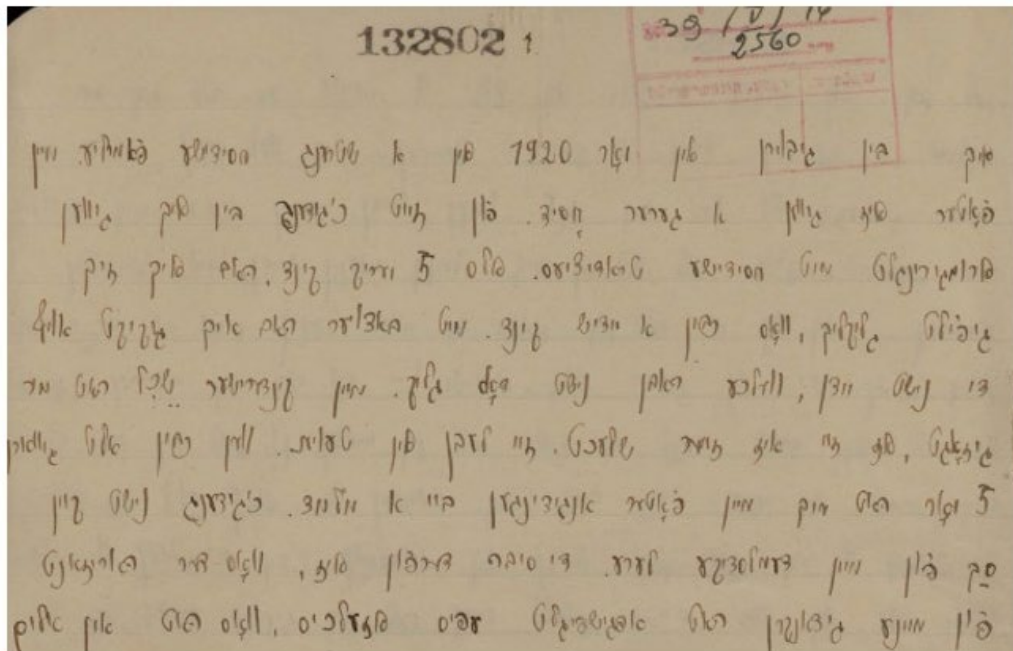 132802 1
39 (V) 14
2560
איך בין געבוירן אין יאָר 1920 אין א שטרענג חסידישע פֿאַמיליע. מיין
פֿאָטער איז געווען א גערער חָסיד. פֿון זייט כ'געדענק בין איך געווען
ארומגערינגלט מיט חסידישע טראדיציעס. אלס 5 יעריק קינד, האב איך זיך
געפֿילט גליקליך, וואָס כ'בין א יודיש קינד. מיט באדויער האב איך געקוקט אויף
די נישט יודן, וועלכע האבן נישט דאָס גליק. מיין קינדערישער שֵׂכֶל האט מיר
געזאָגט, אז זיי איז זייער שלעכט. זיי לעבן אין טעות. ווען כ'בין אלט געווארן
5 יאָר האט מיך מיין פֿאָטער אנגעדינגען ביי א מלמד. כ'געדענק נישט קיין
סַךְ פֿון מיין דעמלסדיקע לערע. די סיבה דערפֿון איז, וואָס דער האריזאנט
פֿון מיינע געדאנקען האט אפגעשפיגלט עפעס אזעלכעס, וואָס האט אין אלעם